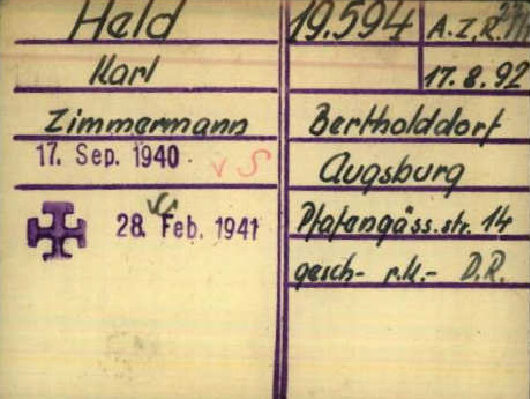 Held
19.594
A.Z.R.
Karl
17.8.92
Zimmermann
Bertholddorf
17. Sep. 1940
v S
Augsburg
28. Feb. 1941
Pfafengäss.str. 14
gesch- r.k.- D.R.